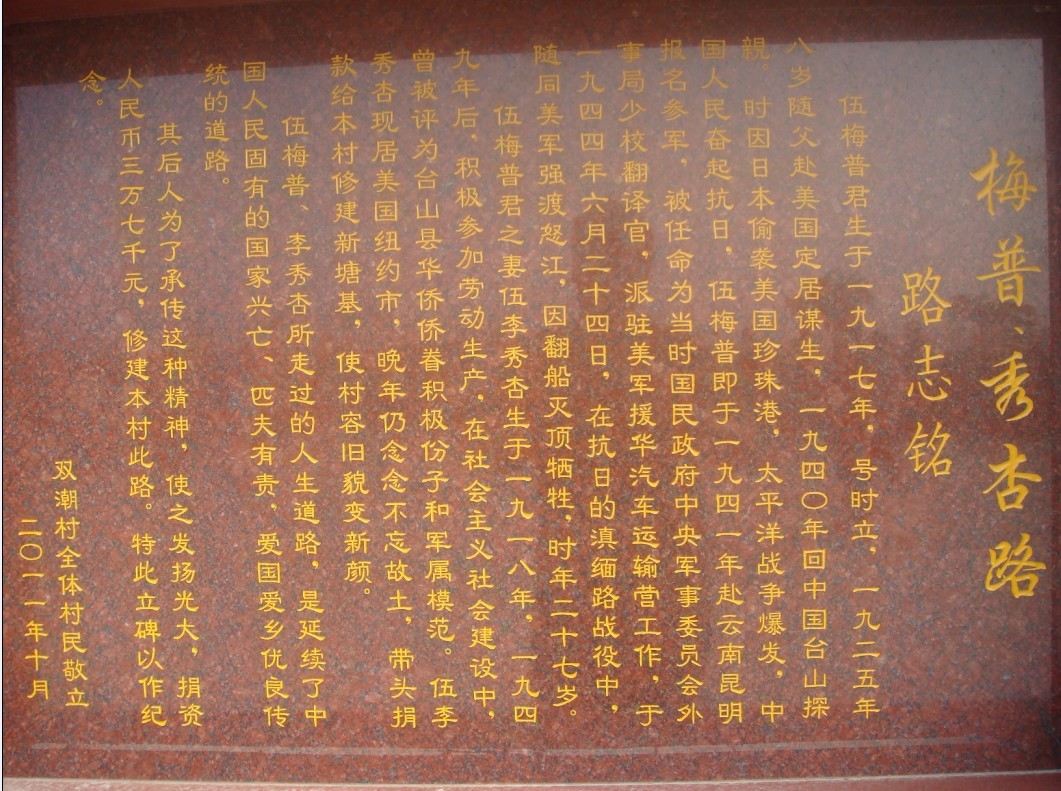 梅普、秀杏路
路志铭
伍梅普君生于一九一七年，号时立，一九二五年
八岁随父赴美国定居谋生，一九四〇年回中国台山探
親。时因日本偷袭美国珍珠港，太平洋战争爆发，中
国人民奋起抗日，伍梅普即于一九四一年赴云南昆明
报名参军，被任命为当时国民政府中央军事委员会外
事局少校翻译官，派驻美军援华汽车运输营工作，于
一九四四年六月二十四日，在抗日的滇缅路战役中，
随同美军强渡怒江，因翻船灭顶牺牲，时年二十七岁。
伍梅普君之妻伍李秀杏生于一九一八年，一九四
九年后，积极参加劳动生产，在社会主义社会建设中，
曾被评为台山县华侨侨眷积极份子和军属模范。伍李
秀杏现居美国纽约市，晚年仍念念不忘故土，带头捐
款给本村修建新塘基，使村容旧貌变新颜。
伍梅普、李秀杏所走过的人生道路，是延续了中
国人民固有的国家兴亡、匹夫有责，爱国爱乡优良传
统的道路。
其后人为了承传这种精神，使之发扬光大，捐资
人民币三万七千元，修建本村此路。特此立碑以作纪
念。
双潮村全体村民敬立
二〇一一年十月